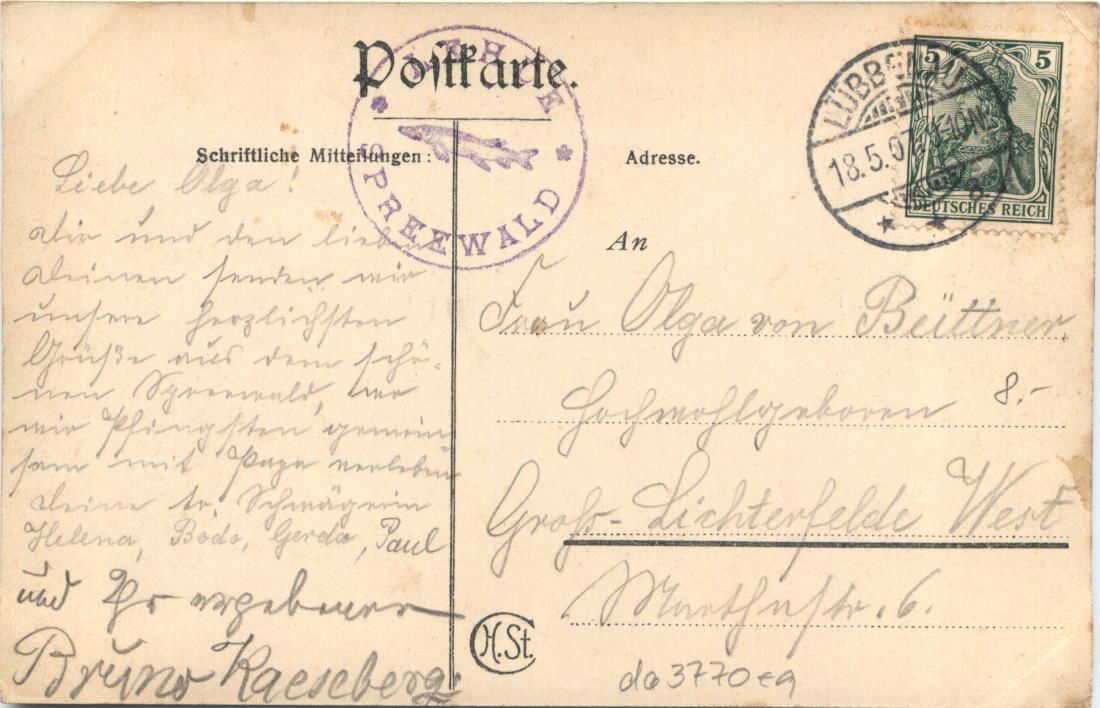 Postkarte.
LEHDE
SPREEWALD
Schriftliche Mitteilungen:
Adresse.
5 5
DEUTSCHES REICH
LÜBBENAU
18.5.07. 11-12 N.
Liebe Olga!
Dir und den lieben
Deinen senden wir
unsere herzlichsten
Grüße aus dem schö-
nen Spreewald, wo
wir Pfingsten gemein
sam mit Papa verleben
Deine tr. Schwägerin
Helena, Bodo, Gerda, Paul
und Ihr ergebener
Bruno Kaeseberg.
An
Frau Olga von Büttner,
Hochwohlgeboren
8.-
Groß-Lichterfelde West
Marthastr. 6.
H.St.
da3770eg